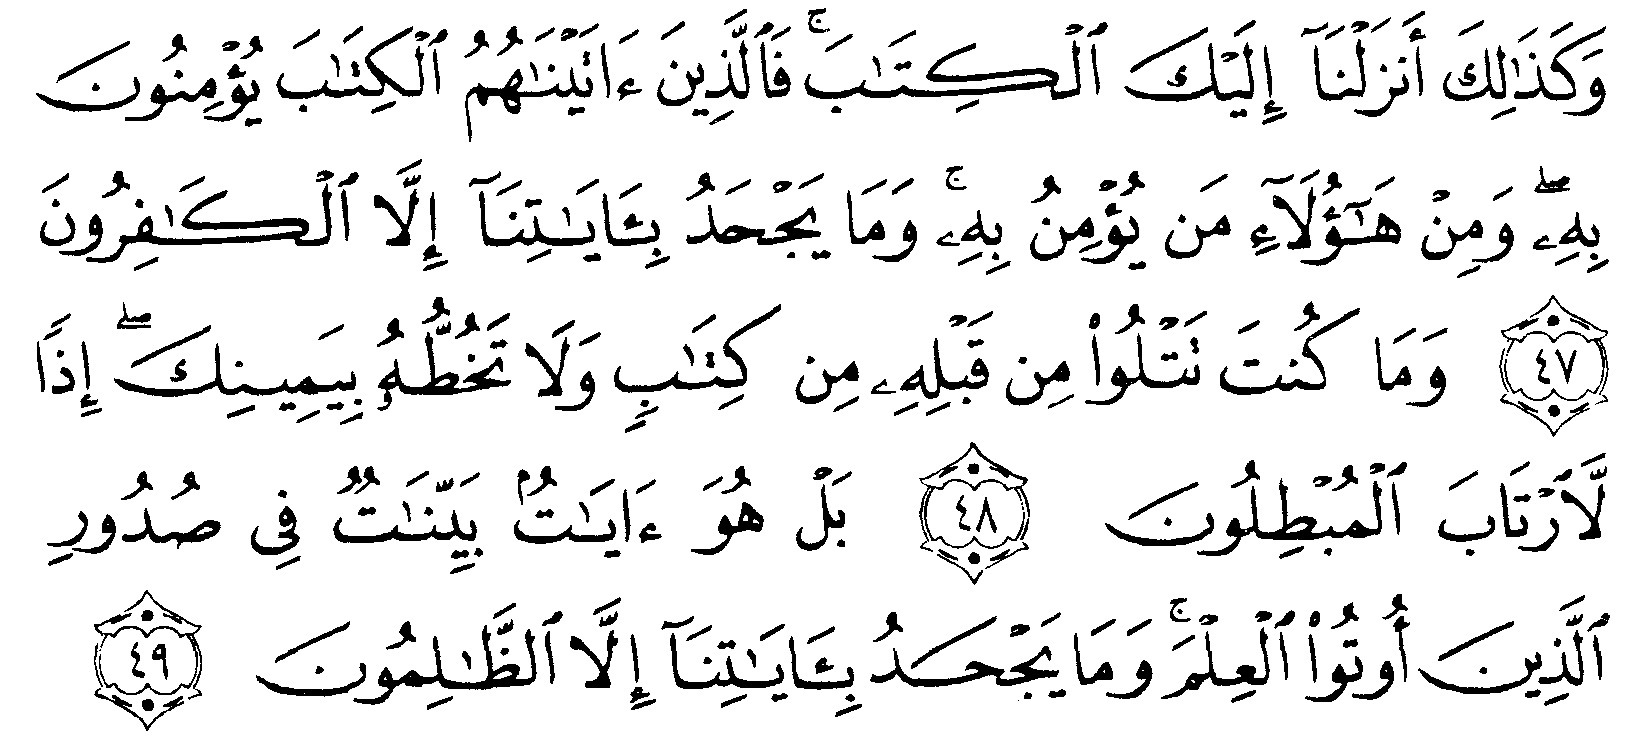 وَكَذَٰلِكَ أَنزَلْنَآ إِلَيْكَ ٱلْكِتَـٰبَ ۚ فَٱلَّذِينَ ءَاتَيْنَـٰهُمُ ٱلْكِتَـٰبَ يُؤْمِنُونَ
بِهِۦ ۖ وَمِنْ هَـٰٓؤُلَآءِ مَن يُؤْمِنُ بِهِۦ ۚ وَمَا يَجْحَدُ بِـَٔايَـٰتِنَآ إِلَّا ٱلْكَـٰفِرُونَ
٤٧ وَمَا كُنتَ تَتْلُوا۟ مِن قَبْلِهِۦ مِن كِتَـٰبٍ وَلَا تَخُطُّهُۥ بِيَمِينِكَ ۖ إِذًا
لَّٱرْتَابَ ٱلْمُبْطِلُونَ ٤٨ بَلْ هُوَ ءَايَـٰتٌۢ بَيِّنَـٰتٌ فِى صُدُورِ
ٱلَّذِينَ أُوتُوا۟ ٱلْعِلْمَ ۚ وَمَا يَجْحَدُ بِـَٔايَـٰتِنَآ إِلَّا ٱلظَّـٰلِمُونَ ٤٩